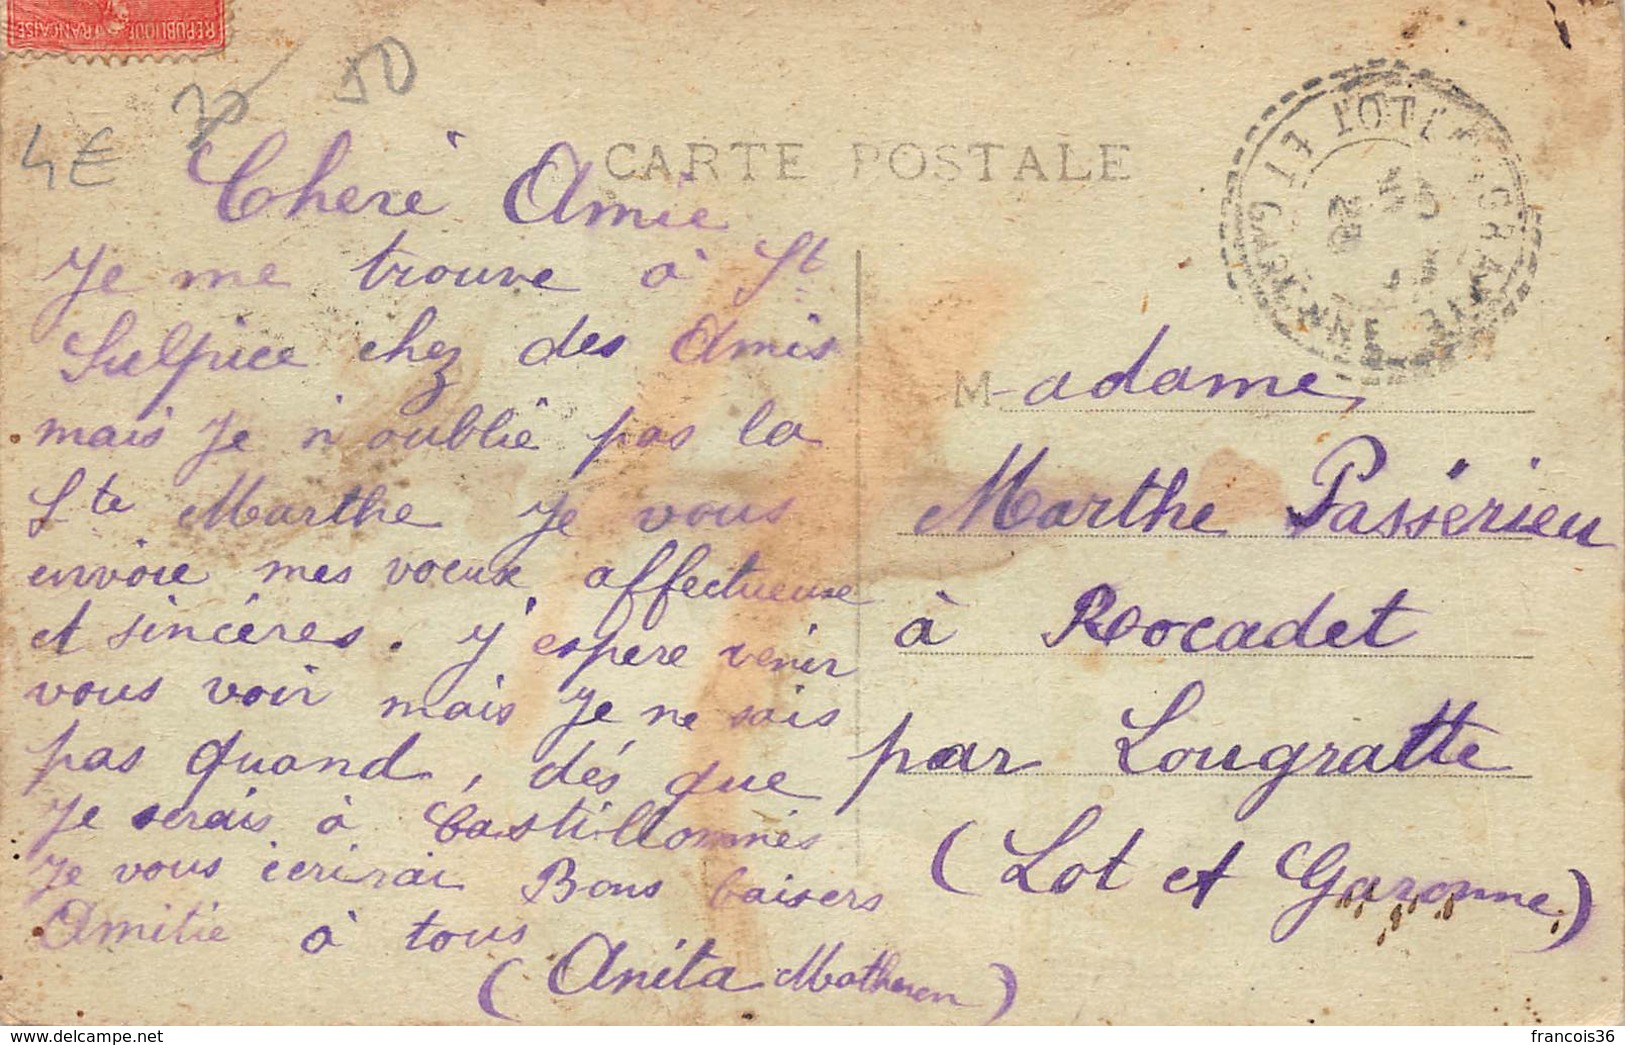 RÉPUBLIQUE FRANÇAISE
50
4€
CARTE POSTALE
Cheré Amie
Je me trouve à St
Sulpice chez des Amis
mais Je n'oublié pas la
Ste Marthe Je vous
envoie mes voeux affectueuse
et sincéres. J'espere venir
vous voir mais Je ne sais
pas quand, dés que
Je serais à Castillonnés
Je vous écrirai Bons baisers
Amitie à tous
(Anita)
M-adame,
Marthe Passérieu
à Rocadet
par Lougratte
(Lot et Garonne)
LOT-ET-GARONNE
francois36